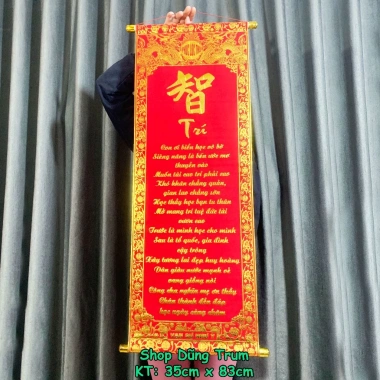 智
Trí
Con ơi biển học vô bờ
Siêng năng là bến ước mơ
thuyền vào
Muốn tài cao trí phải cao
Khó khăn chẳng quản,
gian lao chẳng sờn
Học thầy học bạn tu thân
Mở mang trí tuệ đức tài
vươn cao
Trước là mình học cho mình
Sau là tổ quốc, gia đình
cậy trông
Xây tương lai đẹp huy hoàng
Dân giàu nước mạnh vẻ
vang giống nòi
Công cha nghĩa mẹ ơn thầy
Chân thành đền đáp
học ngày càng chăm
Shop Dũng Trum
KT: 35cm x 83cm